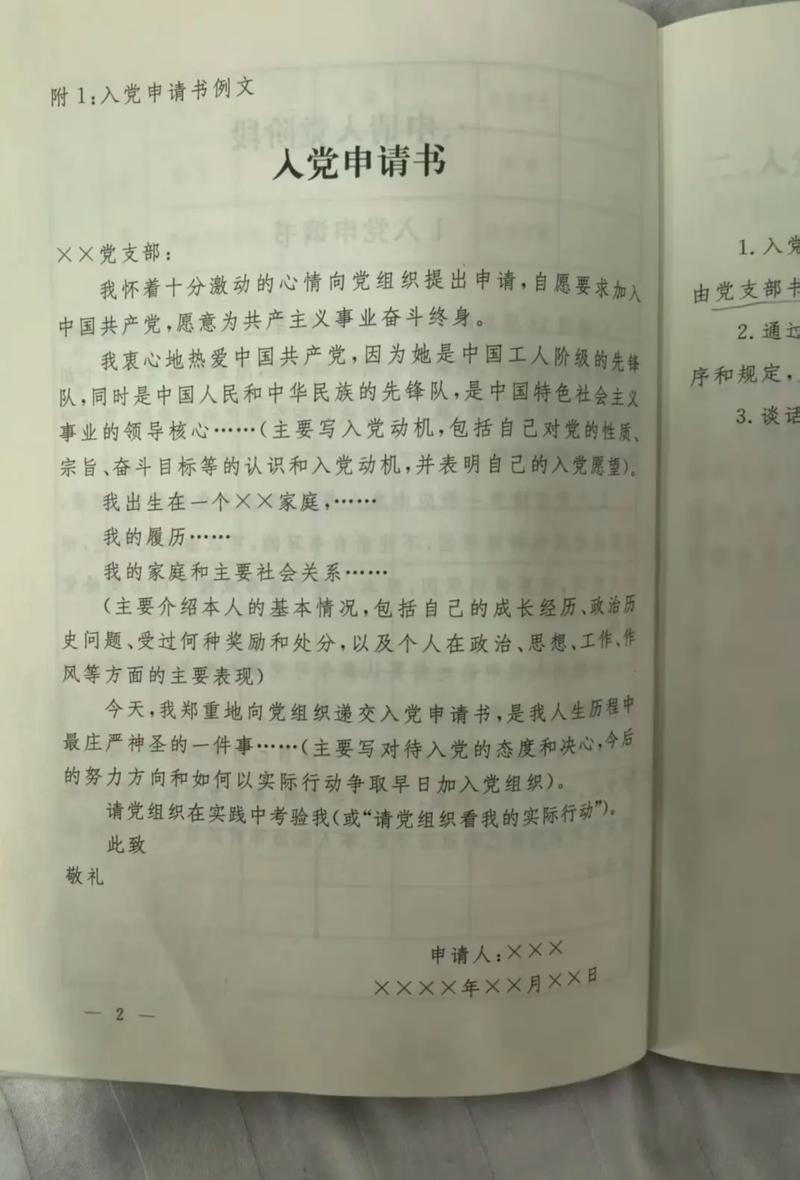 附1:入党申请书例文
入党申请书
××党支部:
我怀着十分激动的心情向党组织提出申请,自愿要求加入
中国共产党,愿意为共产主义事业奋斗终身。
我衷心地热爱中国共产党,因为她是中国工人阶级的先锋
队,同时是中国人民和中华民族的先锋队,是中国特色社会主义
事业的领导核心……(主要写入党动机,包括自己对党的性质、
宗旨、奋斗目标等的认识和入党动机,并表明自己的入党愿望)。
我出生在一个××家庭,……
我的履历……
我的家庭和主要社会关系……
(主要介绍本人的基本情况,包括自己的成长经历、政治历
史问题、受过何种奖励和处分,以及个人在政治、思想、工作、作
风等方面的主要表现)
今天,我郑重地向党组织递交入党申请书,是我人生历程中
最庄严神圣的一件事……(主要写对待入党的态度和决心,今后
的努力方向和如何以实际行动争取早日加入党组织)。
请党组织在实践中考验我(或“请党组织看我的实际行动”)。
此致
敬礼
申请人:×××
××××年××月××日
— 2 —
1.入党
由党支部书
2.通过
序和规定,
3.谈话